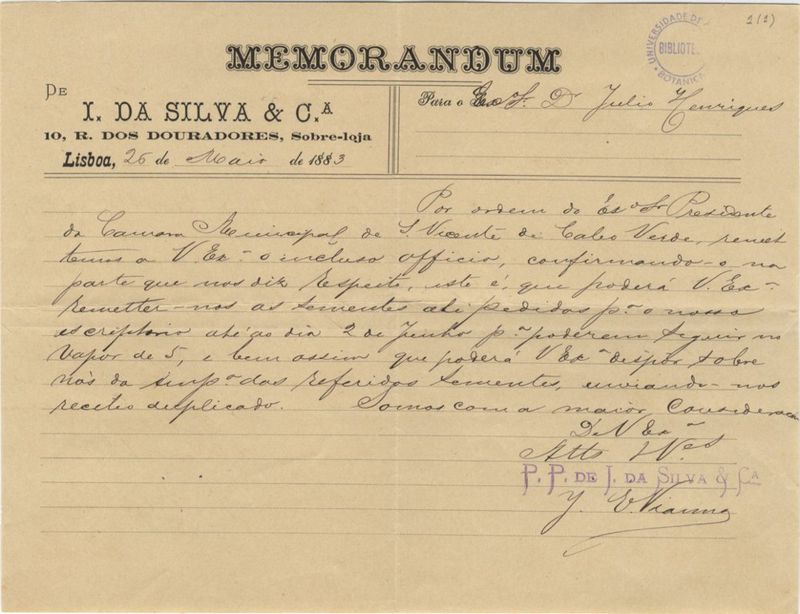 1(1)
UNIVERSIDADE DE
BIBLIOTE
BOTANICA
MEMORANDUM
DE
I. DA SILVA & C.A
10, R. DOS DOURADORES, Sobre-loja
Lisboa, 26 de Maio de 1883
Para o Exo Sr. Dr Julio Henriques
Por ordem do Exo Sr Presidente
da Camara Municipal de S. Vicente de Cabo Verde, remet
temos a V. Exa o incluso officio, confirmando-o na
parte que nos diz respeito, isto é, que poderá V. Exa
remetter-nos as sementes ali pedidas pa o nosso
escriptorio até ao dia 2 de Junho pa poderem seguir no
vapor de 5, e bem assim que poderá V Exa dispor sobre
nós da impa das referidas sementes, enviando-nos
recibo duplicado. Somos com a maior Consideração
De V Exa
Atto Ves
P. P. DE J. DA SILVA & Ca
J. E. Vianna